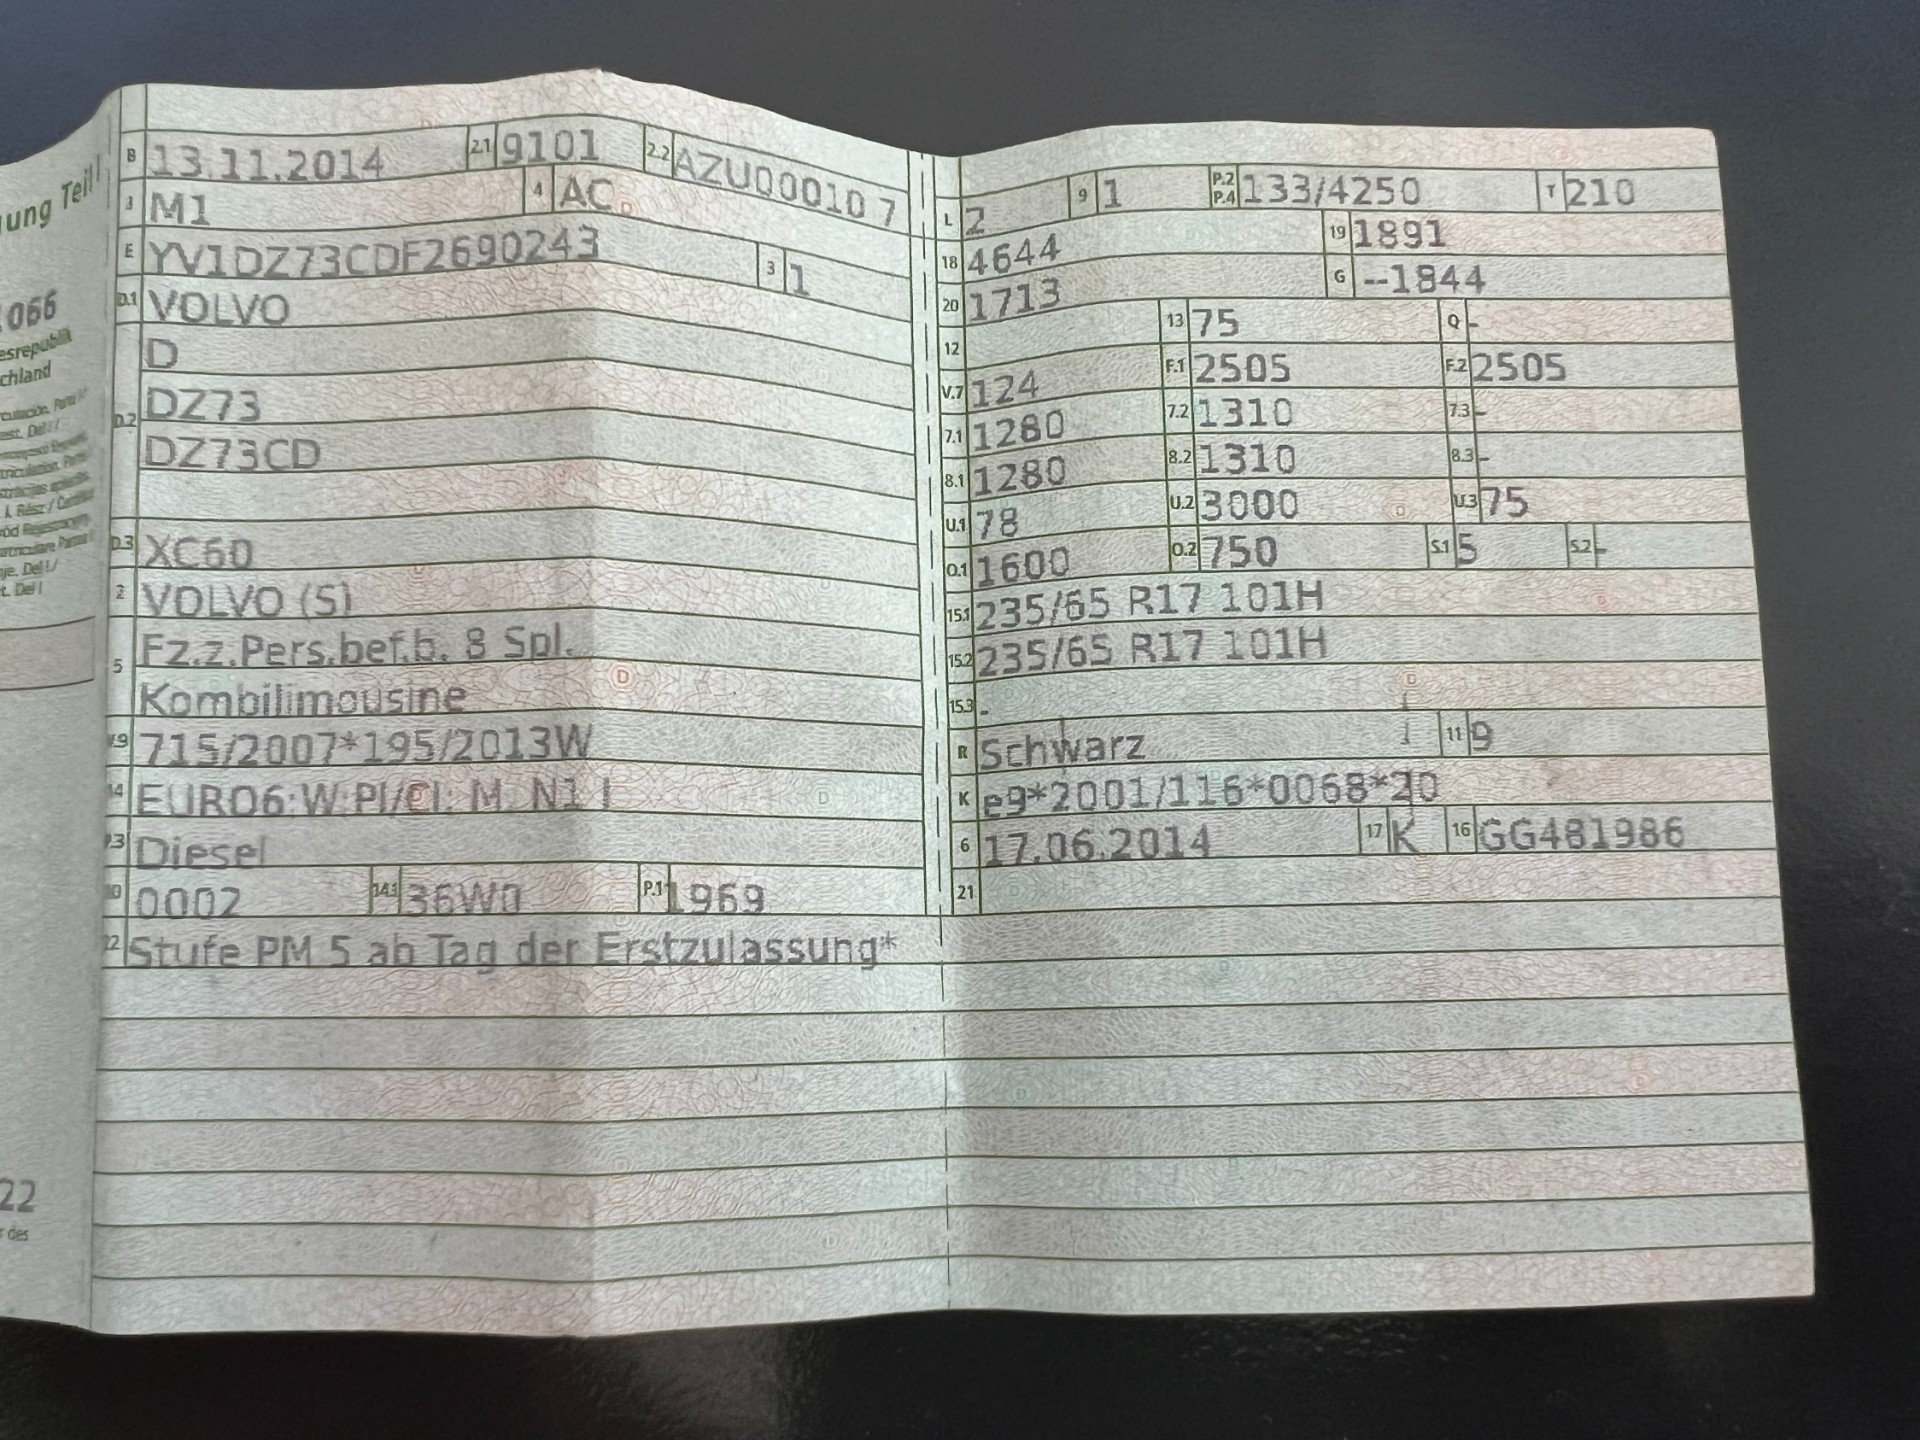 gung Teil I
1066
esrepublik
chland
22
r des
B 13.11.2014 2.1 9101 2.2 AZU00010 7
J M1 4 AC
E YV1DZ73CDF2690243 3 1
D.1 VOLVO
D.2 D
DZ73
DZ73CD
D.3 XC60
2 VOLVO (S)
5 Fz.z.Pers.bef.b. 8 Spl.
Kombilimousine
V.9 715/2007*195/2013W
14 EURO6;W;PI/CI; M, N1 I
P.3 Diesel
10 0002 14.1 36W0 P.1 1969
22 Stufe PM 5 ab Tag der Erstzulassung*
L 2 9 1 P.2 P.4 133/4250 T 210
18 4644 19 1891
20 1713 G --1844
12 13 75 Q -
V.7 124 F.1 2505 F.2 2505
7.1 1280 7.2 1310 7.3 -
8.1 1280 8.2 1310 8.3 -
U.1 78 U.2 3000 U.3 75
O.1 1600 O.2 750 S.1 5 S.2 -
15.1 235/65 R17 101H
15.2 235/65 R17 101H
15.3 -
R Schwarz 11 9
K e9*2001/116*0068*20
6 17.06.2014 17 K 16 GG481986
21